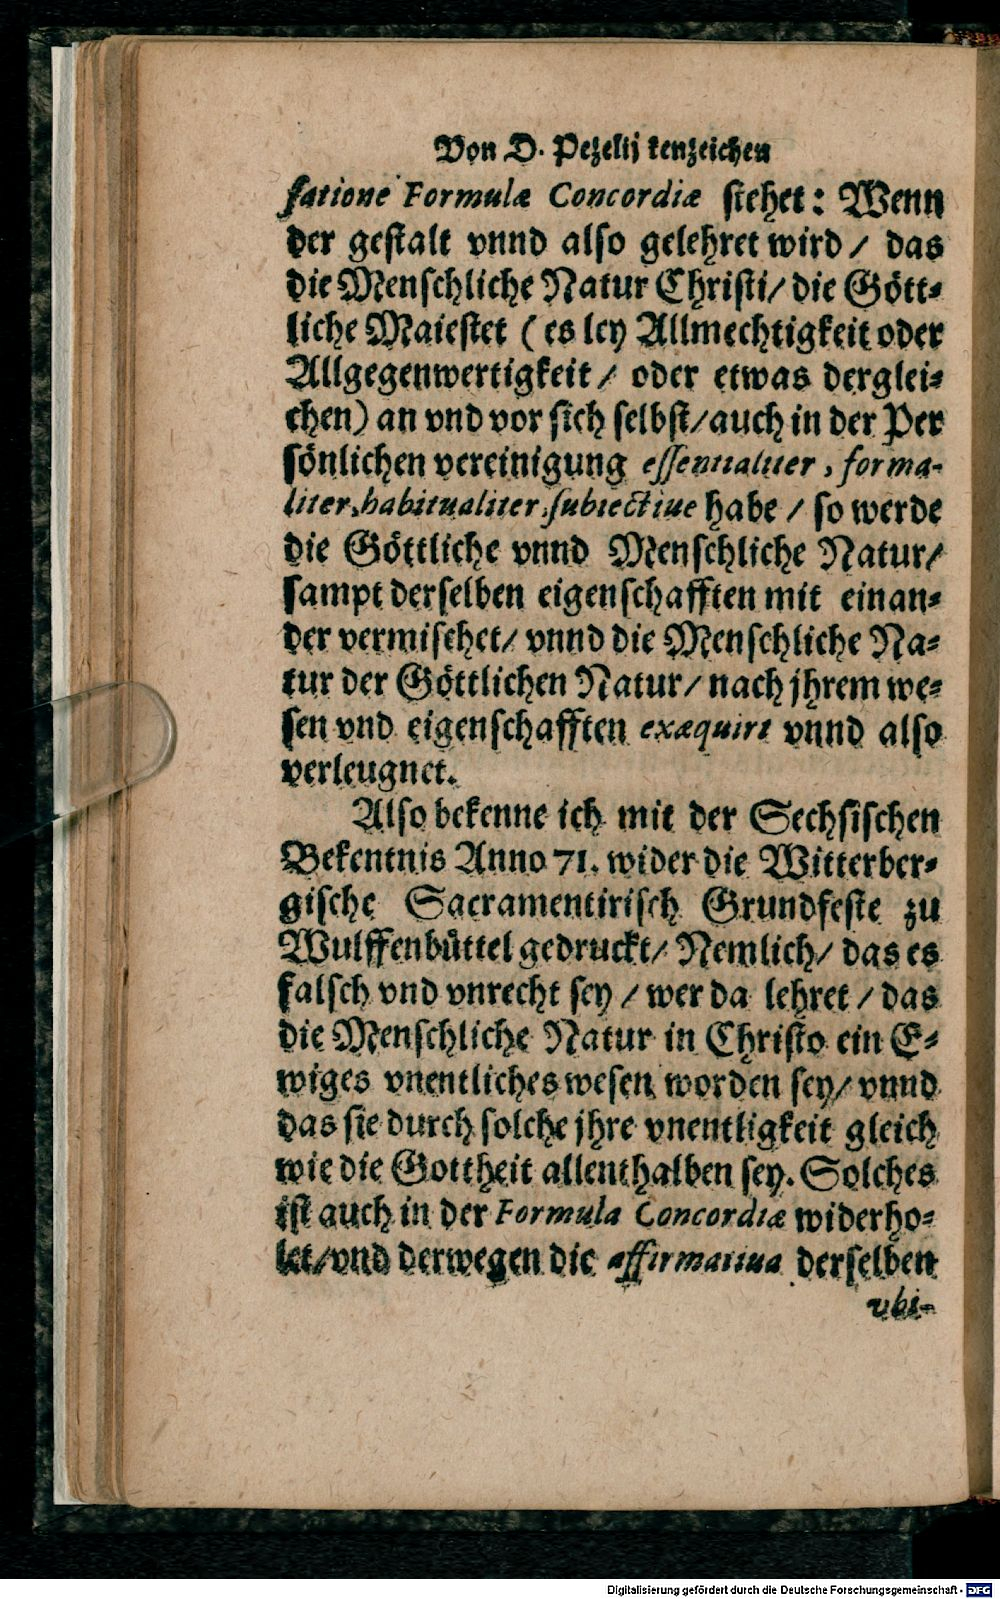 Von D. Pezelij kenzeichen
satione Formulæ Concordiæ stehet: Wenn
der gestalt vnnd also gelehret wird/ das
die Menschliche Natur Christi/ die Gött-
liche Maiestet (es sey Allmechtigkeit oder
Allgegenwertigkeit/ oder etwas derglei-
chen) an vnd vor sich selbst/ auch in der Per
sönlichen vereinigung essentialiter, forma-
liter, habitualiter, subiectiue habe/ so werde
die Göttliche vnnd Menschliche Natur/
sampt derselben eigenschafften mit einan-
der vermischet/ vnnd die Menschliche Na-
tur der Göttlichen Natur/ nach jhrem we-
sen vnd eigenschafften exæquirt vnnd also
verleugnet.
Also bekenne ich mit der Sechsischen
Bekentnis Anno 71. wider die Witterber-
gische Sacramentirisch Grundfeste zu
Wulffenbüttel gedruckt/ Nemlich/ das es
falsch vnd vnrecht sey/ wer da lehret/ das
die Menschliche Natur in Christo ein E-
wiges vnentliches wesen worden sey/ vnnd
das sie durch solche jhre vnentligkeit gleich
wie die Gottheit allenthalben sey. Solches
ist auch in der Formula Concordiæ widerho-
let/ vnd derwegen die affirmatiua derselben
vbi-
Digitalisierung gefördert durch die Deutsche Forschungsgemeinschaft - DFG